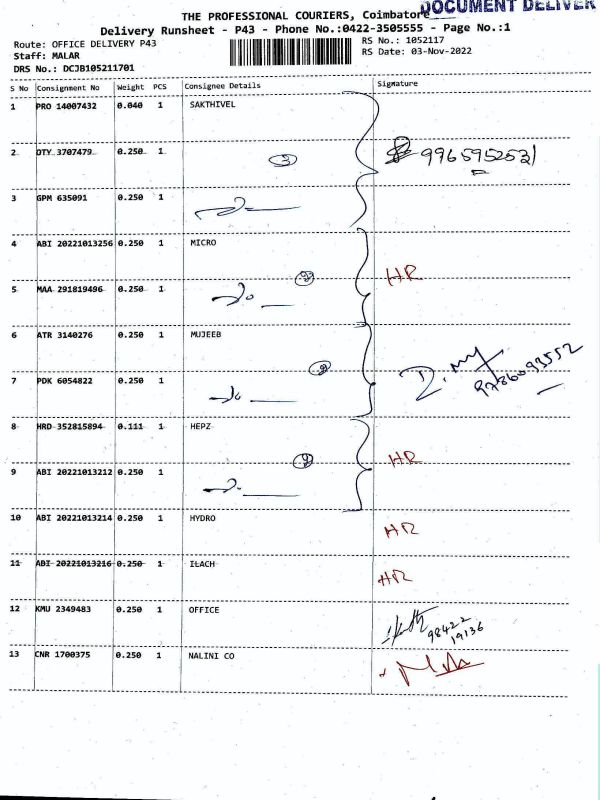 DOCUMENT DELIVER
THE PROFESSIONAL COURIERS, Coimbatore
Delivery Runsheet - P43 - Phone No.:0422-3505555 - Page No.:1
Route: OFFICE DELIVERY P43 RS No.: 1052117
Staff: MALAR RS Date: 03-Nov-2022
DRS No.: DCJB105211701
S No Consignment No Weight PCS Consignee Details Signature
1 PRO 14007432 0.040 1 SAKTHIVEL
2 DTY 3707479 0.250 1 3 9965952531
3 GPM 635091 0.250 1
4 ABI 20221013256 0.250 1 MICRO HR
5 MAA 291819496 0.250 1 2
6 ATR 3140276 0.250 1 MUJEEB
7 PDK 6054822 0.250 1 2 9786093552
8 HRD 352815894 0.111 1 HEPZ HR
9 ABI 20221013212 0.250 1 2
10 ABI 20221013214 0.250 1 HYDRO HR
11 ABI 20221013216 0.250 1 ILACH HR
12 KMU 2349483 0.250 1 OFFICE 98422
19136
13 CNR 1700375 0.250 1 NALINI CO